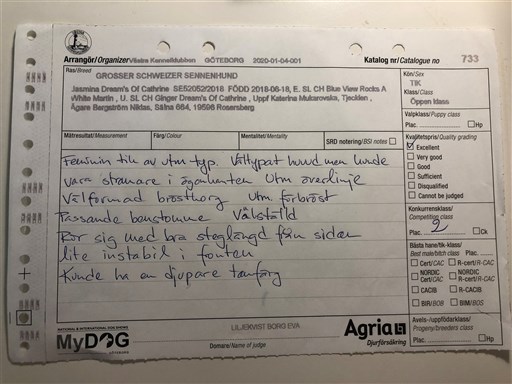 Arrangör/Organizer Västra Kennelklubben GÖTEBORG 2020-01-04-001 Katalog nr/Catalogue no 733
Ras/Breed GROSSER SCHWEIZER SENNENHUND
Jasmina Dream's Of Cathrine SE52052/2018 FÖDD 2018-06-18, E. SL CH Blue View Rocks A
White Martin , U. SL CH Ginger Dream's Of Cathrine , Uppf Katerina Mukarovska, Tjeckien ,
Ägare Bergström Niklas, Sälna 664, 19596 Rosersberg
Kön/Sex
TIK
Klass/Class
Öppen klass
Valpklass/Puppy class
Plac. Hp
Mätresultat/Measurement Färg/Colour Mentalitet/Mentality SRD notering/BSI notes
Kvalitetspris/Quality grading
Excellent
Very good
Good
Sufficient
Disqualified
Cannot be judged
Feminin tik av utm typ. Vältypat huvud men kunde
vara stramare i ögonkanten Utm överlinje
Välformad bröstkorg Utm förbröst
Passande benstomme Välställd
Rör sig med bra steglängd från sidan
lite instabil i fronten
Kunde ha en djupare tanfärg
Konkurrensklass/
Competition class
Plac. 2 Ck
Bästa hane/tik-klass/
Best male/bitch class Plac.
Cert/CAC R-cert/R-CAC
NORDIC Cert/CAC NORDIC R-cert/R-CAC
CACIB R-CACIB
BIR/BOB BIM/BOS
Avels-/uppfödarklass/
Progeny/breeders class
Plac. Hp
NATIONAL & INTERNATIONAL DOG SHOWS
MyDOG
GÖTEBORG
LILJEKVIST BORG EVA
Domare/Name of judge
Agria
Djurförsäkring